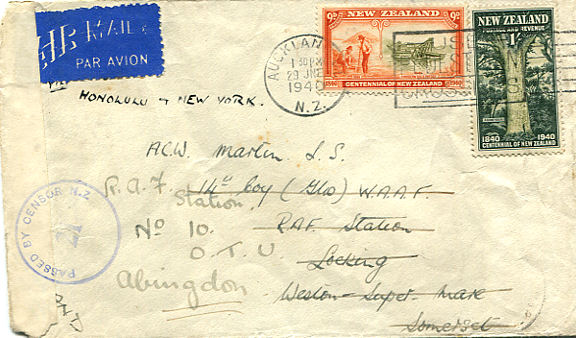 AIR MAIL
PAR AVION
HONOLULU & NEW YORK.
AUCKLAND
1 30 PM
29 JNE
1940
N.Z.
9D NEW ZEALAND 9D
CENTENNIAL OF NEW ZEALAND
NEW ZEALAND
POSTAGE AND REVENUE
1/-
1840 1940
CENTENNIAL OF NEW ZEALAND
PASSED BY CENSOR N.Z.
ACW. Martin L.S.
R.A.F. 14th Coy (Glos) W.A.A.F.
Station. RAF Station
No 10. Locking
O.T.U. Weston-Super Mare
Abingdon Somerset